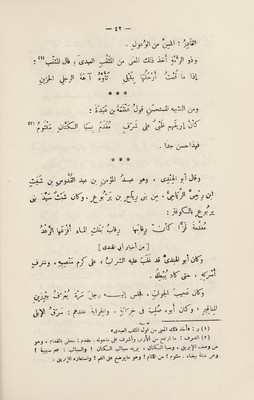 — ٤٢ —
القادِرُ : المُبِنُّ من الوُعولِ .
وذو الرُّمَّةِ أَخذ ذلك المعنى من المُثَقِّب العبدىّ ، قال المثقّب (١) :
إذا ما قُمْتُ أَرْحَلُهَا بِلَيْلٍ تَأَوَّهُ آهَةَ الرجلِ الحَزِينِ
* * *
ومن التشبيه المستحسَنِ قولُ عَلْقَمَةَ بن عَبَدَةَ :
كأنّ إبريقَهم ظَبْىٌ على شَرَفٍ مُفَدَّمٌ بِسَبَا الكَتّانِ مَلْثُومُ (٢)
فهذا حسن جدا .
* * *
وقال أبو الهِنْدِىّ ، وهو عبدُ المؤمن بن عبد القُدُّوس بن شَبَثِ
ابن رِبْعِىٍّ الرِّيَاحِىُّ ، مِن بنى رِيَاحِ بن يَرْبُوع ، وكان شَبَثٌ سَيِّدَ بنى
يربوعٍ بالكوفة :
مُفَدَّمَةً قَزًّا كأنّ رِقابَها رِقابُ بَنَاتِ الماءِ أَفْزَعَها الرَّعْدُ
[ من أخبار أبى الهندى ]
وكان أبو الهندىّ قد غَلَبَ عليه الشرابُ ، على كرم مَنْصِبِه ، وشَرَفِ
أُسْرَتِه ، حتى كاد يُبْطِلُه .
وكان عَجِيبَ الجوابِ ، فجلس إليه رجلٌ مَرَّةً يُعْرَفُ بِبِرْزِينِ
المناقير ، وكان أبوه صُلِبَ فى خِرَابَةٍ ، والخِرابَةُ عندهم : سَرَقُ الإبل
(١) ر : «أخذ ذلك المعنى من قول المثقب العبدى» .
(٢) الشرف :